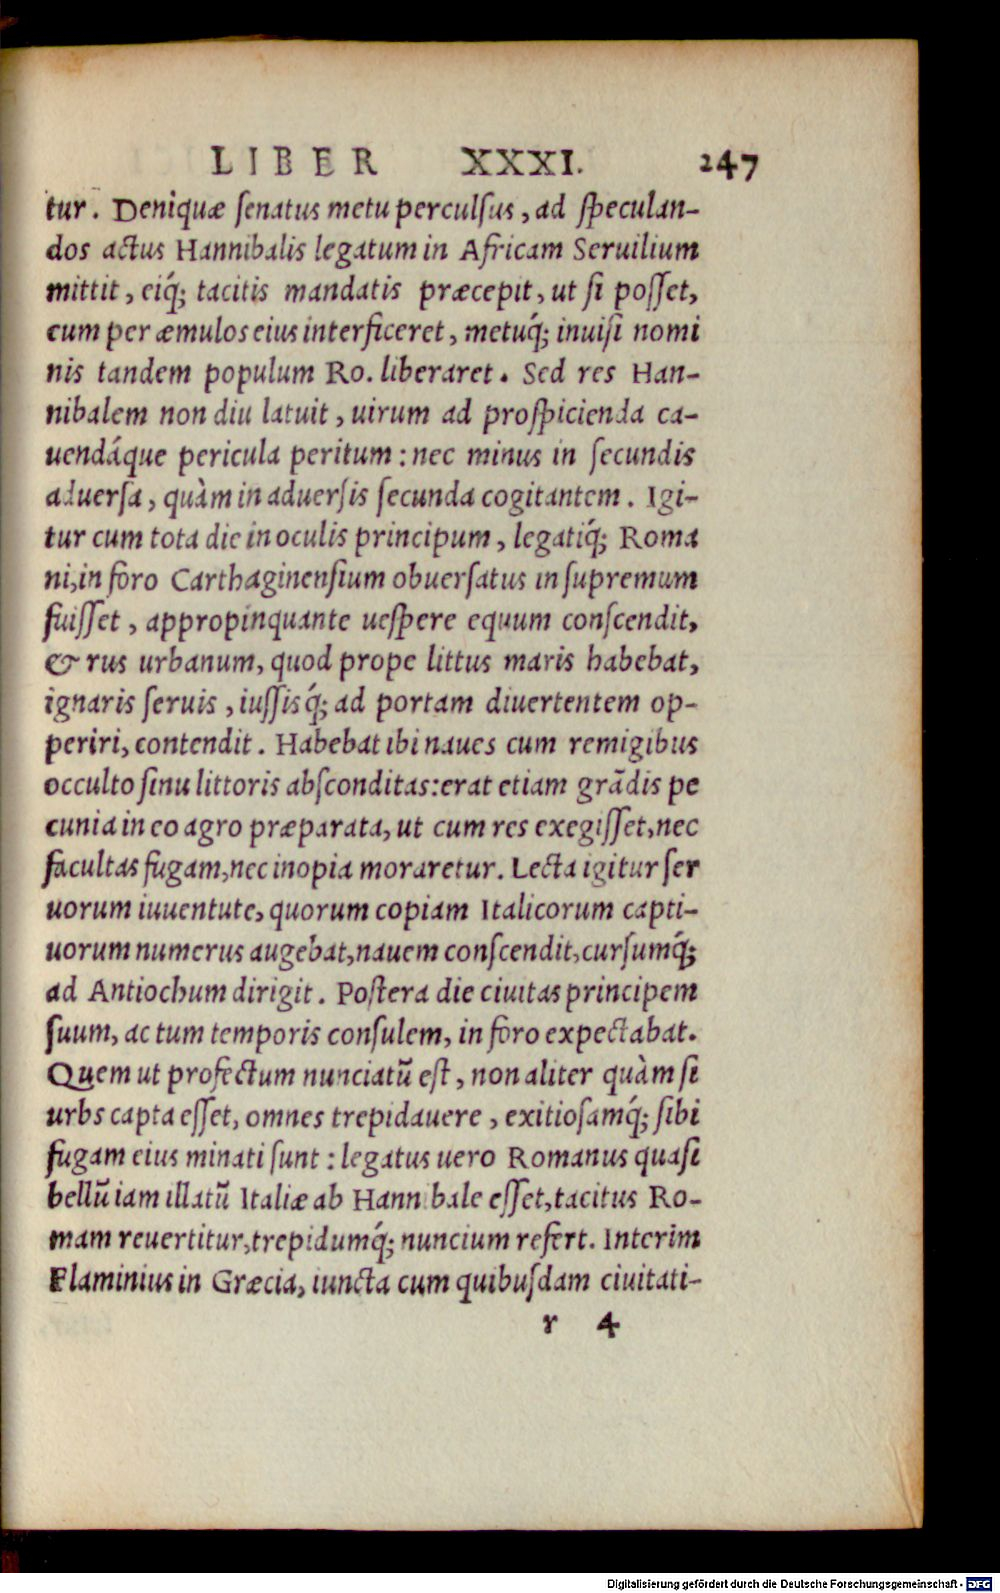 LIBER XXXI. 247
tur. Deniquæ ſenatus metu perculſus, ad ſpeculan-
dos actus Hannibalis legatum in Africam Seruilium
mittit, eiq́; tacitis mandatis præcepit, ut ſi poſſet,
eum per æmulos eius interficeret, metuq́; inuiſi nomi
nis tandem populum Ro. liberaret. Sed res Han-
nibalem non diu latuit, uirum ad proſpicienda ca-
uendáque pericula peritum: nec minus in ſecundis
aduerſa, quàm in aduerſis ſecunda cogitantem. Igi-
tur cum tota die in oculis principum, legatiq́; Roma
ni, in foro Carthaginenſium obuerſatus in ſupremum
fuiſſet, appropinquante ueſpere equum conſcendit,
& rus urbanum, quod prope littus maris habebat,
ignaris ſeruis, iuſſisq́; ad portam diuertentem op-
periri, contendit. Habebat ibi naues cum remigibus
occulto ſinu littoris abſconditas: erat etiam grādis pe
cunia in eo agro præparata, ut cum res exegiſſet, nec
facultas fugam, nec inopia moraretur. Lecta igitur ſer
uorum iuuentute, quorum copiam Italicorum capti-
uorum numerus augebat, nauem conſcendit, curſumq́;
ad Antiochum dirigit. Poſtera die ciuitas principem
ſuum, ac tum temporis conſulem, in foro expectabat.
Quem ut profectum nunciatū eſt, non aliter quàm ſi
urbs capta eſſet, omnes trepidauere, exitioſamq́; ſibi
fugam eius minati ſunt: legatus uero Romanus quaſi
bellū iam illatū Italiæ ab Hannibale eſſet, tacitus Ro-
mam reuertitur, trepidumq́; nuncium refert. Interim
Flaminius in Græcia, iuncta cum quibuſdam ciuitati-
r 4
Digitalisierung gefördert durch die Deutsche Forschungsgemeinschaft - DFG